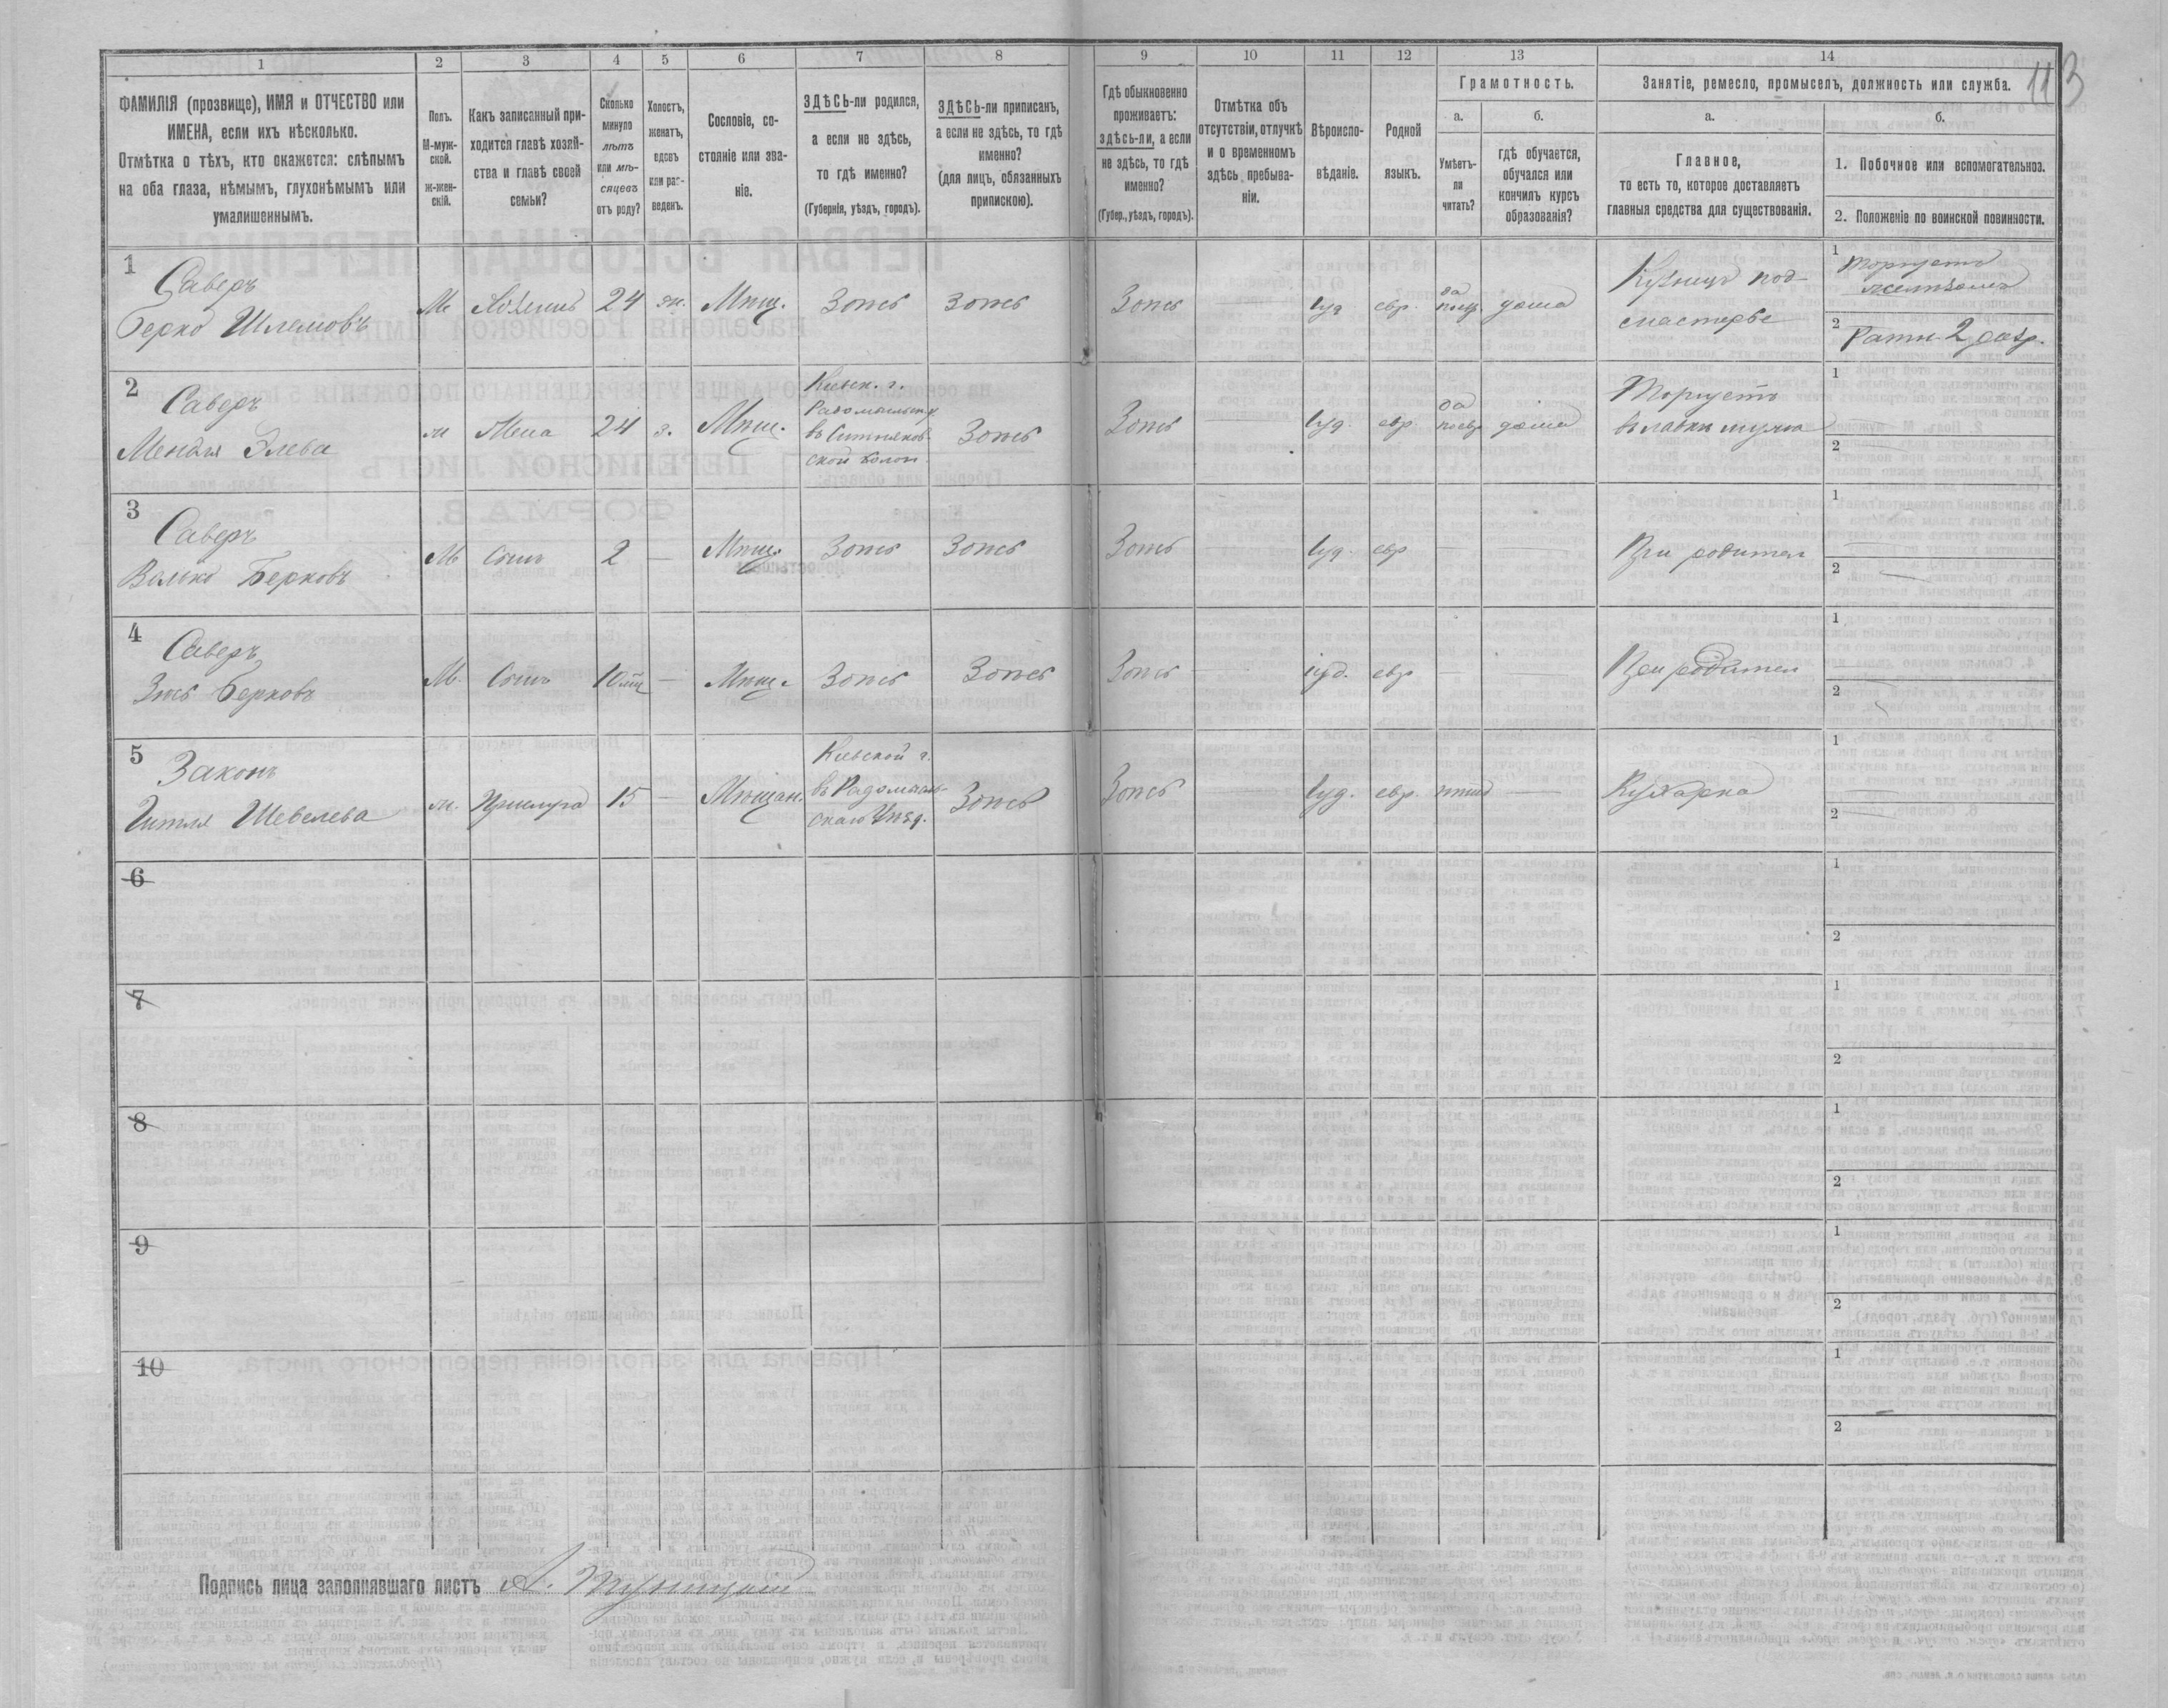 113
1 2 3 4 5 6 7 8 9 10 11 12 13 14
ФАМИЛІЯ (прозвище), ИМЯ и ОТЧЕСТВО или
ИМЕНА, если ихъ нѣсколько.
Отмѣтка о тѣхъ, кто окажется: слѣпымъ
на оба глаза, нѣмымъ, глухонѣмымъ или
умалишеннымъ.
Полъ.
М-муж-
ской.
ж-жен-
скій.
Какъ записанный при-
ходится главѣ хозяй-
ства и главѣ своей
семьи?
Сколько
минуло
лѣтъ
или мѣ-
сяцевъ
отъ роду?
Холостъ,
женатъ,
вдовъ
или раз-
веденъ.
Сословіе, со-
стояніе или зва-
ніе.
ЗДѢСЬ-ли родился,
а если не здѣсь,
то гдѣ именно?
(Губернія, уѣздъ, городъ).
ЗДѢСЬ-ли приписанъ,
а если не здѣсь, то гдѣ
именно?
(для лицъ, обязанныхъ
припискою).
Гдѣ обыкновенно
проживаетъ:
здѣсь-ли, а если
не здѣсь, то гдѣ
именно?
(Губер., уѣздъ, городъ).
Отмѣтка объ
отсутствіи, отлучкѣ
и о временномъ
здѣсь пребыва-
ніи.
Вѣроиспо-
вѣданіе.
Родной
языкъ.
Грамотность.
а.
Умѣетъ-
ли
читать?
б.
гдѣ обучается,
обучался или
кончилъ курсъ
образованія?
Занятіе, ремесло, промыселъ, должность или служба.
а.
Главное,
то есть то, которое доставляетъ
главныя средства для существованія.
б.
1. Побочное или вспомогательное.
2. Положеніе по воинской повинности.
1
Саверъ
Берко Шлемовъ
М Хозяинъ 24 жн. Мѣщ. Здѣсь Здѣсь Здѣсь Іуд. евр. да дома
Кузнецъ под-
мастерье
1 Торгуетъ
желѣзомъ
2 Ратн. 2 разр.
2
Саверъ
Мендля Элева
ж Жена 24 з. Мѣщ.
Кіевск. г.
Радомысльск. у.
въ Ситняков-
ской колон.
Здѣсь Здѣсь Іуд. евр. да дома
Торгуетъ
въ лавкѣ мужа
1
2
3
Саверъ
Волько Берковъ
М Сынъ 2 — Мѣщ. Здѣсь Здѣсь Здѣсь Іуд. евр
При родител
1
2
4
Саверъ
Зусь Берковъ
М. Сынъ 10 мѣц — Мѣщ. Здѣсь Здѣсь Здѣсь іуд. евр — —
При родител
1
2
5
Законъ
Гитля Шевелева
ж. Прислуга 15 — Мѣщан.
Кіевской г.
въ Радомысль-
скаго Уѣзд.
Здѣсь Здѣсь Іуд. евр. нѣтъ —
Кухарка
1
2
6
1
2
7
1
2
8
1
2
9
1
2
10
1
2
Подпись лица заполнявшаго листъ А.